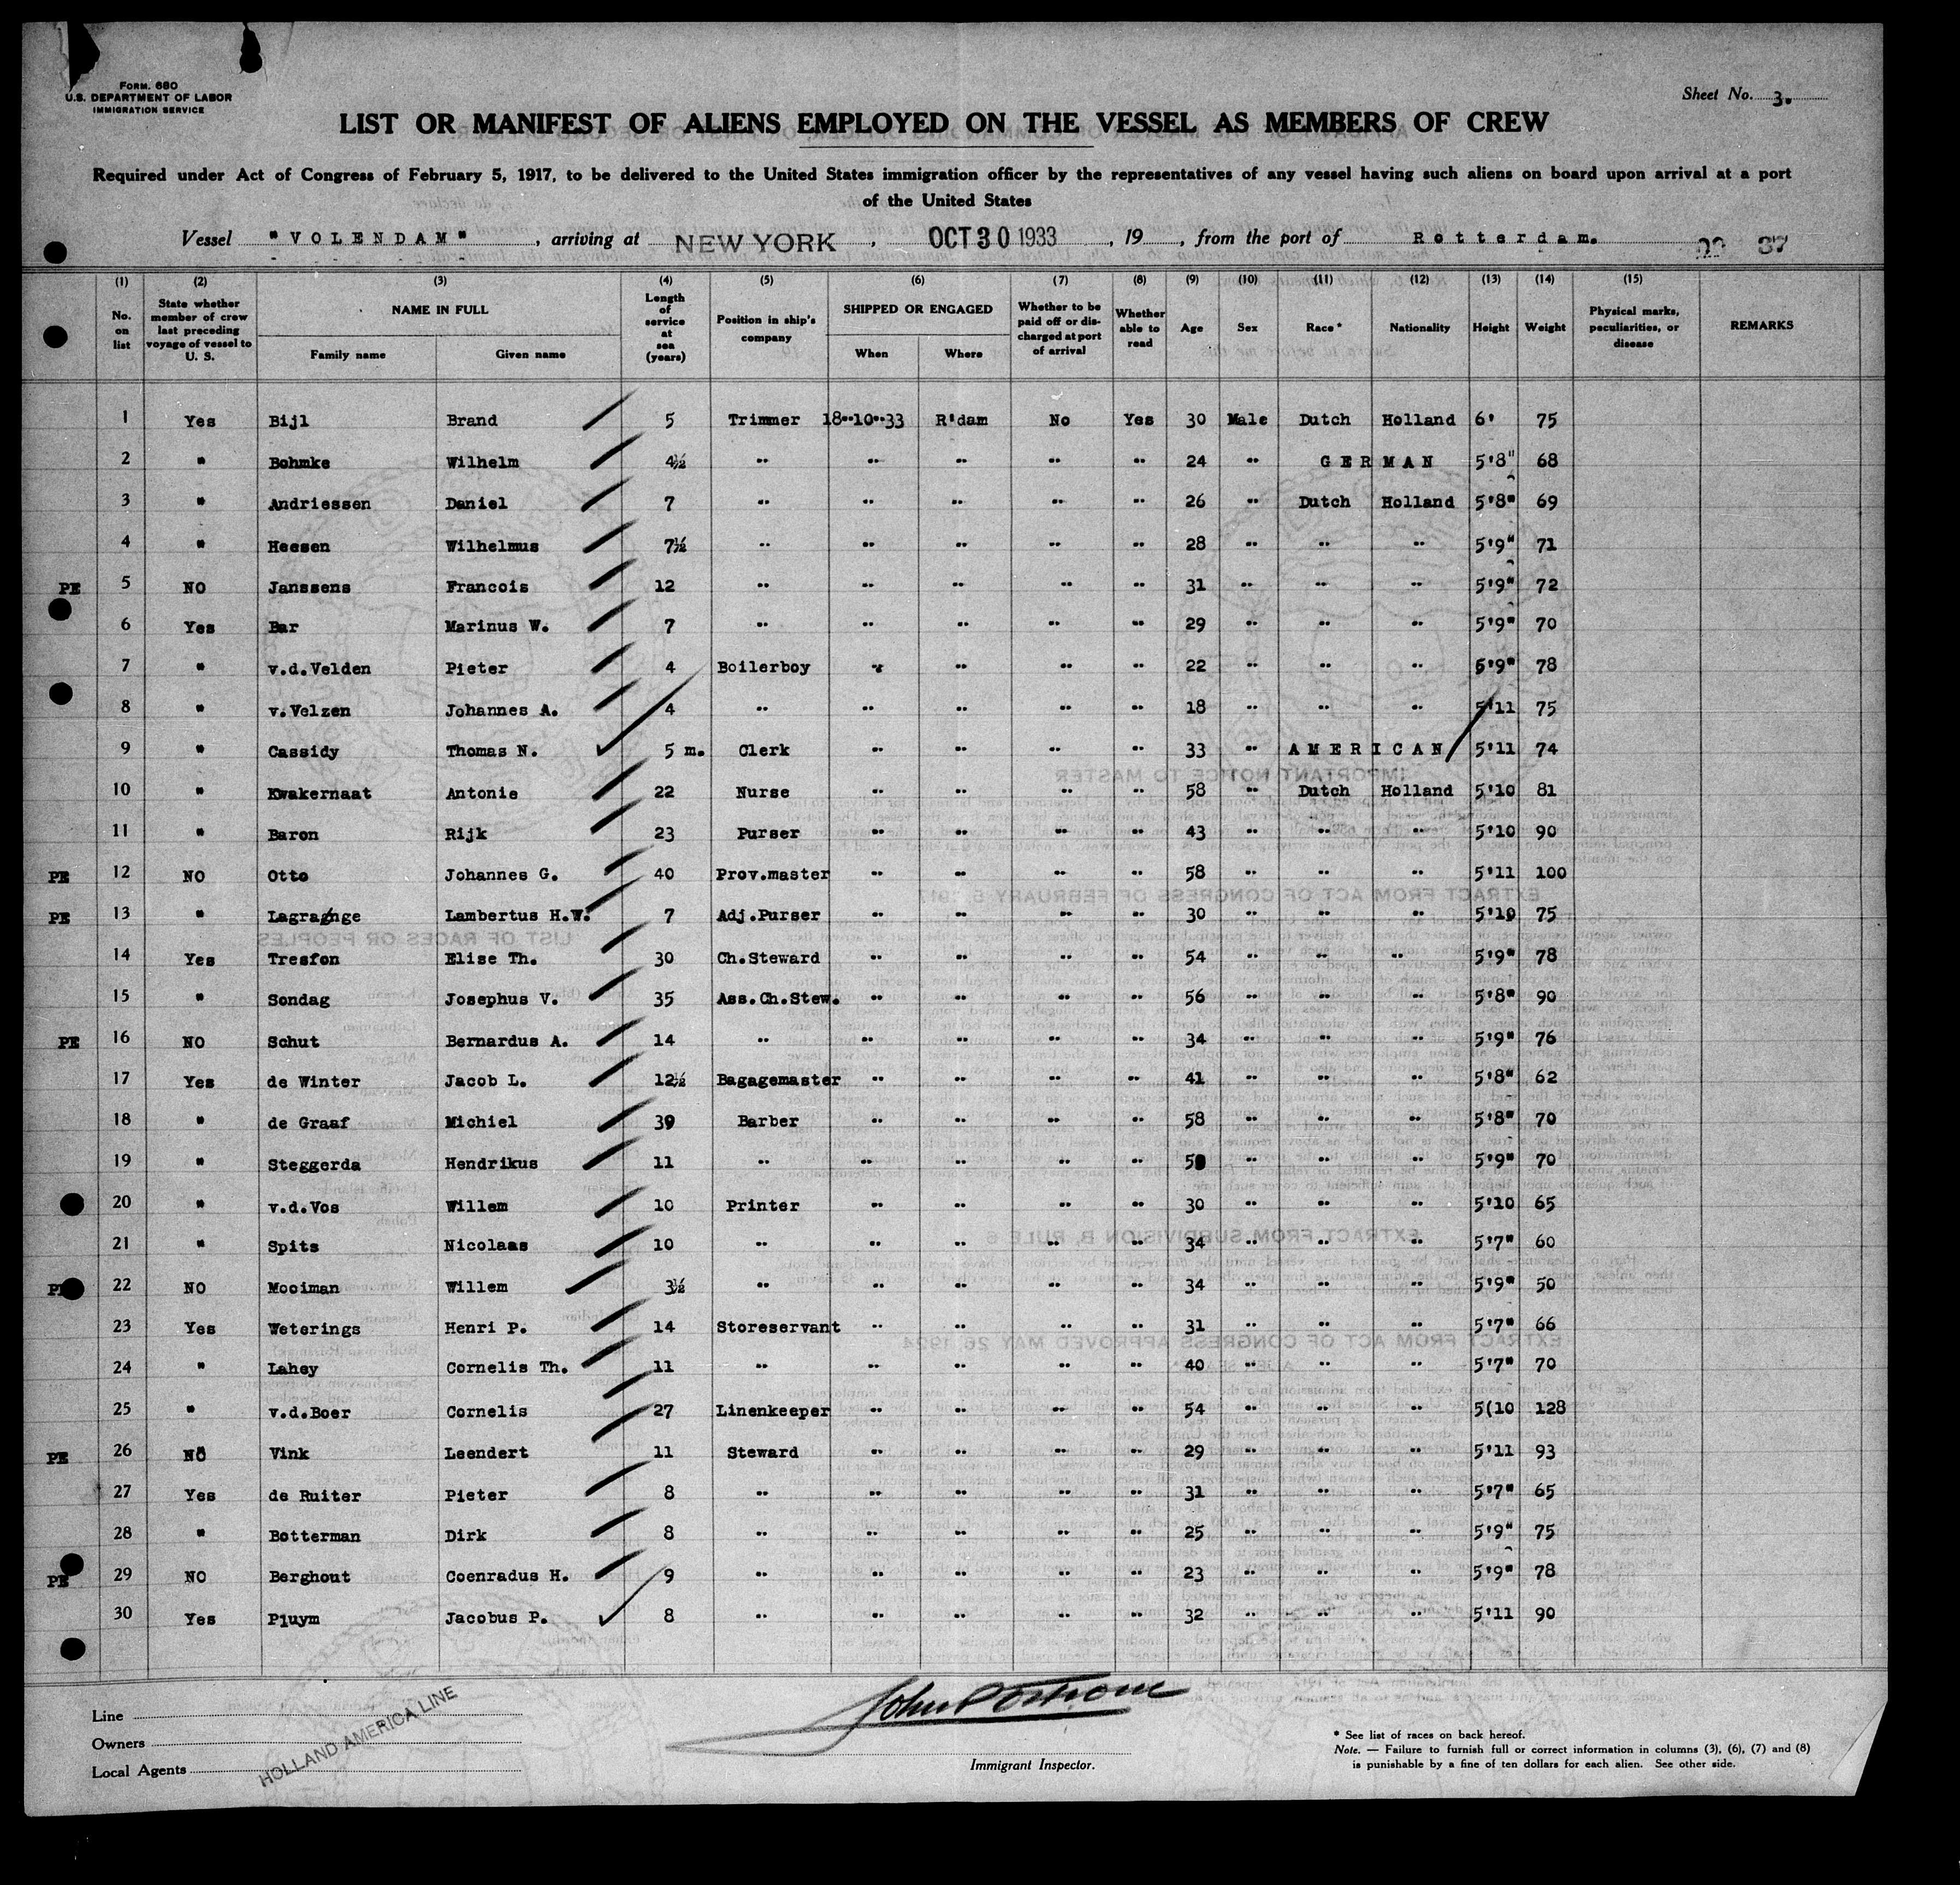 FORM. 680
U.S. DEPARTMENT OF LABOR
IMMIGRATION SERVICE
Sheet No. 3.
LIST OR MANIFEST OF ALIENS EMPLOYED ON THE VESSEL AS MEMBERS OF CREW
Required under Act of Congress of February 5, 1917, to be delivered to the United States immigration officer by the representatives of any vessel having such aliens on board upon arrival at a port
of the United States
Vessel "VOLENDAM", arriving at NEW YORK, OCT 30 1933, 19, from the port of Rotterdam. 87
(1) (2) (3) (4) (5) (6) (7) (8) (9) (10) (11) (12) (13) (14) (15)
No. on list State whether member of crew last preceding voyage of vessel to U. S. NAME IN FULL Family name Given name Length of service at sea (years) Position in ship's company SHIPPED OR ENGAGED When Where Whether to be paid off or discharged at port of arrival Whether able to read Age Sex Race* Nationality Height Weight Physical marks, peculiarities, or disease REMARKS
1 Yes Bijl Brand 5 Trimmer 18"10"33 R'dam No Yes 30 Male Dutch Holland 6' 75
2 " Bohmke Wilhelm 4½ " " " " " 24 " GERMAN 5'8" 68
3 " Andriessen Daniel 7 " " " " " 26 " Dutch Holland 5'8" 69
4 " Heesen Wilhelmus 7½ " " " " " 28 " " " 5'9" 71
PE 5 NO Janssens Francois 12 " " " " " 31 " " " 5'9" 72
6 Yes Bar Marinus W. 7 " " " " " 29 " " " 5'9" 70
7 " v.d.Velden Pieter 4 Boilerboy " " " " 22 " " " 5'9" 78
8 " v.Velzen Johannes A. 4 " " " " " 18 " " " 5'11 75
9 " Cassidy Thomas N. 5 m. Clerk " " " " 33 " AMERICAN 5'11 74
10 " Kwakernaat Antonie 22 Nurse " " " " 58 " Dutch Holland 5'10 81
11 " Baron Rijk 23 Purser " " " " 43 " " " 5'10 90
PE 12 NO Otto Johannes G. 40 Prov.master " " " " 58 " " " 5'11 100
PE 13 " Lagrange Lambertus H.W. 7 Adj.Purser " " " " 30 " " " 5'10 75
14 Yes Tresfon Elise Th. 30 Ch.Steward " " " " 54 " " " 5'9" 78
15 " Sondag Josephus V. 35 Ass.Ch.Stew. " " " " 56 " " " 5'8" 90
PE 16 NO Schut Bernardus A. 14 " " " " " 34 " " " 5'9" 76
17 Yes de Winter Jacob L. 12½ Bagagemaster " " " " 41 " " " 5'8" 62
18 " de Graaf Michiel 39 Barber " " " " 58 " " " 5'8" 70
19 " Steggerda Hendrikus 11 " " " " " " " " 5'9" 70
20 " v.d.Vos Willem 10 Printer " " " " 30 " " " 5'10 65
21 " Spits Nicolaas 10 " " " " " 34 " " " 5'7" 60
PE 22 NO Mooiman Willem 3½ " " " " " 34 " " " 5'9" 50
23 Yes Weterings Henri P. 14 Storeservant " " " " 31 " " " 5'7" 66
24 " Lahey Cornelis Th. 11 " " " " " 40 " " " 5'7" 70
25 " v.d.Boer Cornelis 27 Linenkeeper " " " " 54 " " " 5(10 128
PE 26 NO Vink Leendert 11 Steward " " " " 29 " " " 5'11 93
27 Yes de Ruiter Pieter 8 " " " " " 31 " " " 5'7" 65
28 " Botterman Dirk 8 " " " " " 25 " " " 5'9" 75
PE 29 NO Berghout Coenradus H. 9 " " " " " 23 " " " 5'9" 78
30 Yes Pluym Jacobus P. 8 " " " " " 32 " " " 5'11 90
Line
Owners
Local Agents
HOLLAND AMERICA LINE
Immigrant Inspector.
* See list of races on back hereof.
Note. — Failure to furnish full or correct information in columns (3), (6), (7) and (8)
is punishable by a fine of ten dollars for each alien. See other side.